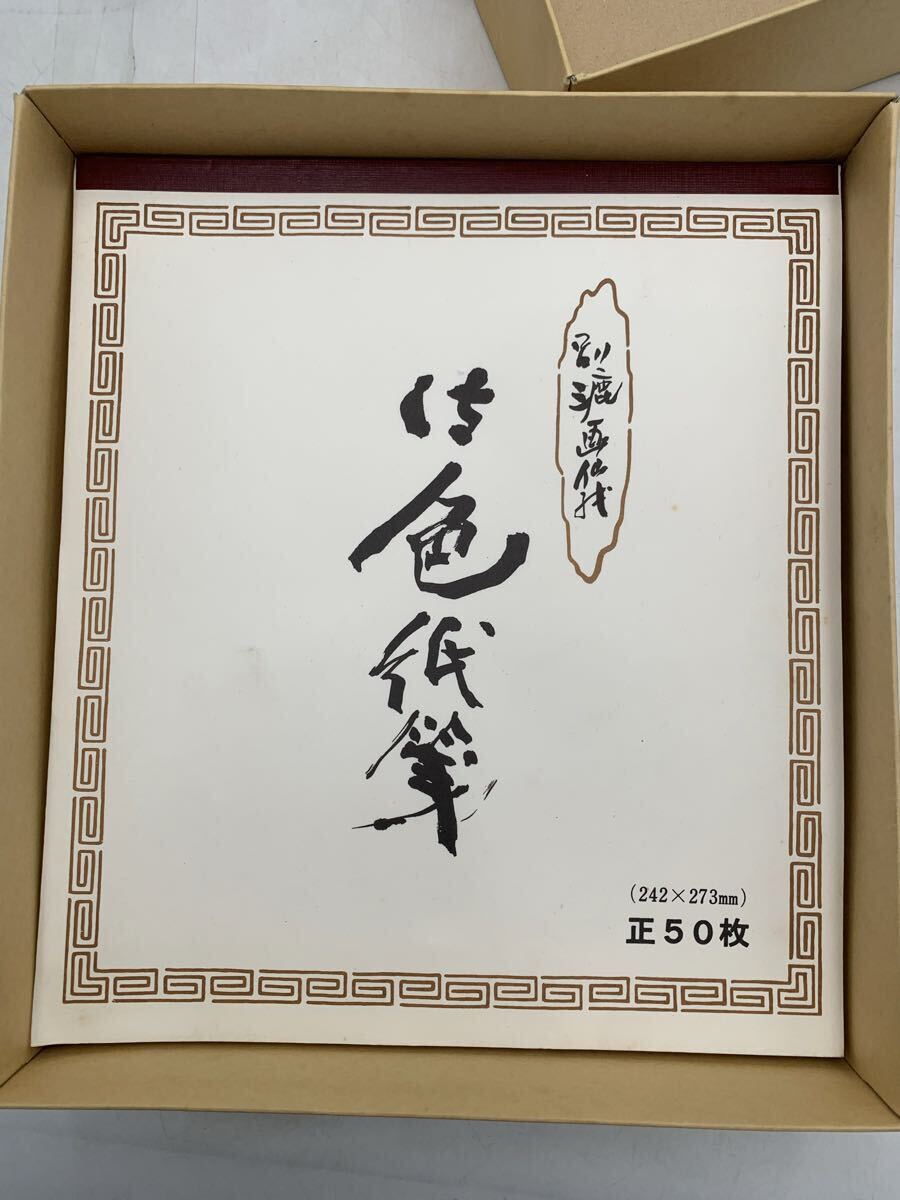 別漉画仙紙
仿色紙箋
(242×273mm)
正50枚